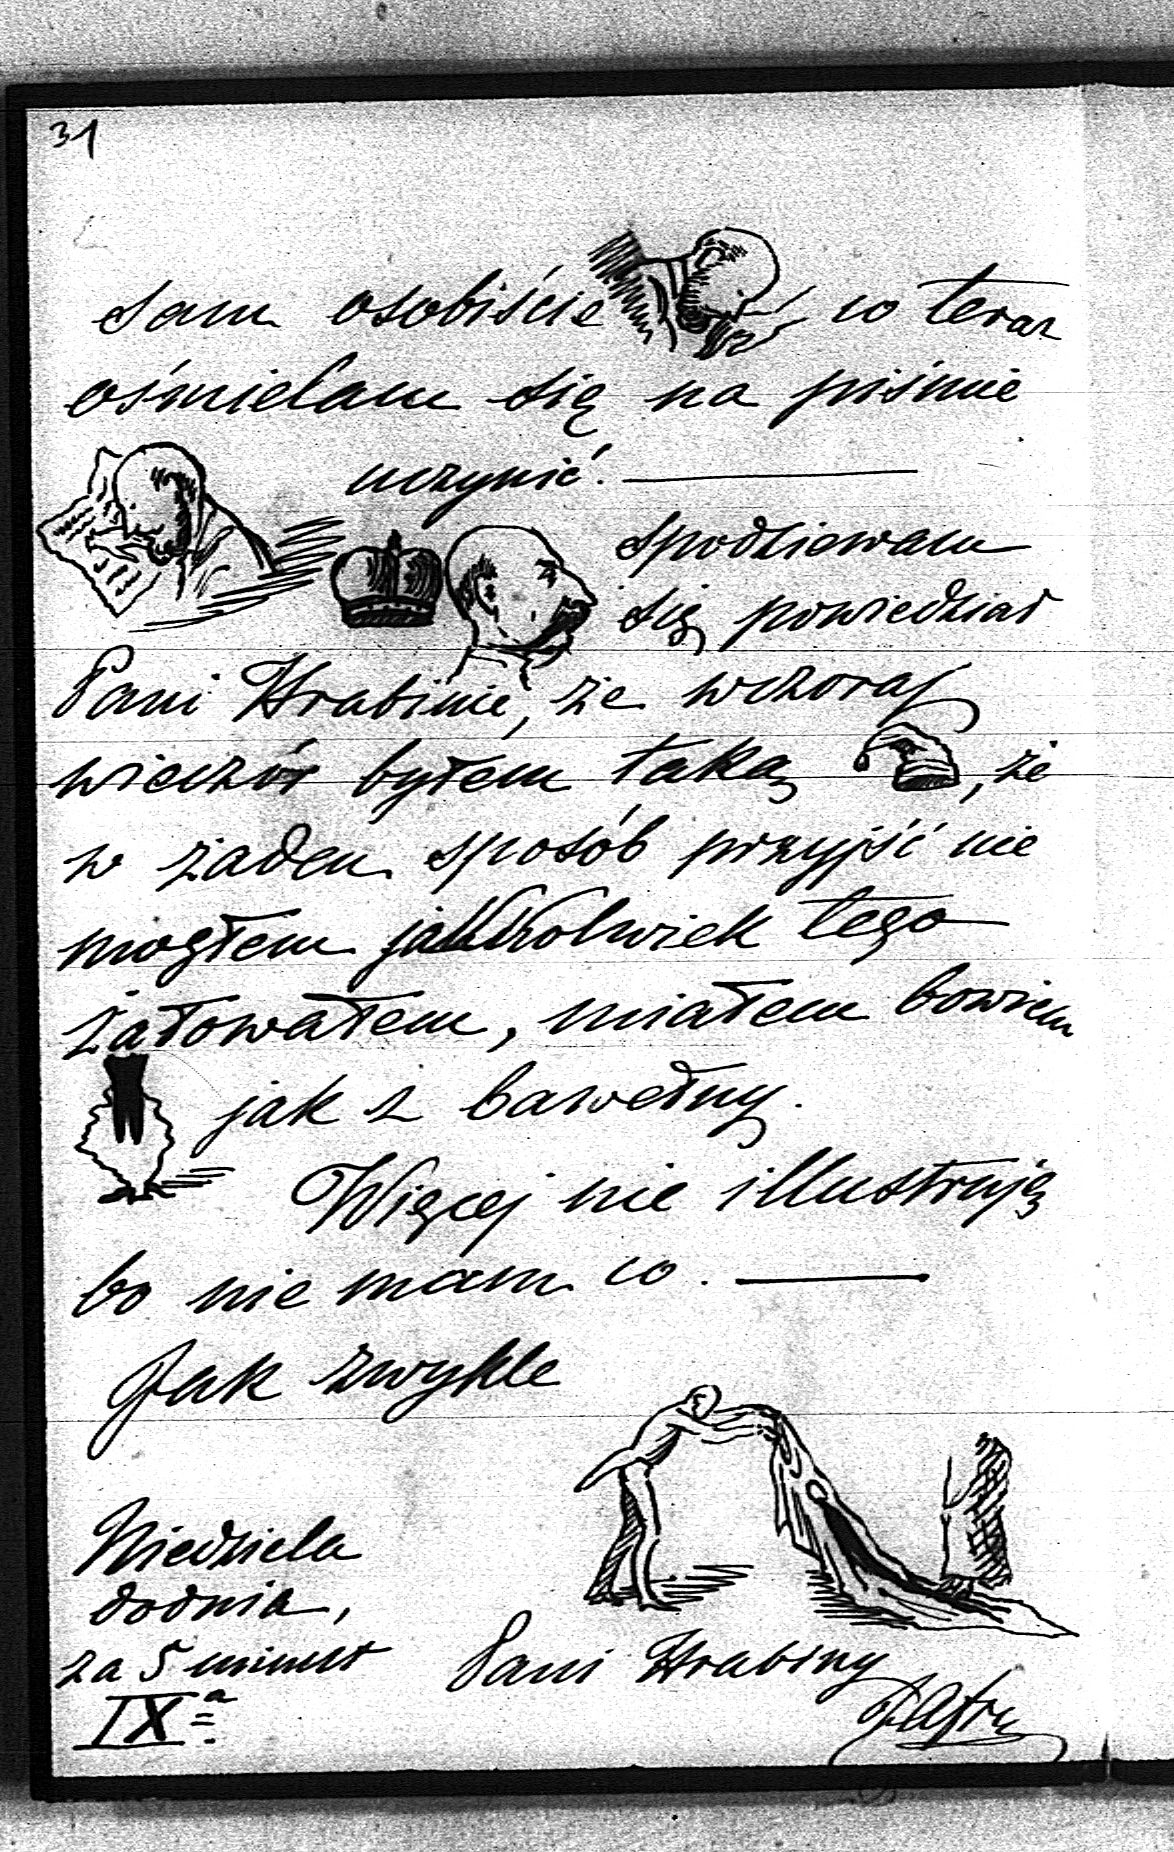 31
sam osobiście co teraz
ośmielam się na piśmie
uczynić. —
spodziewam
się powiedzieć
Pani Hrabinie, że wczoraj
wieczór byłem taką , że
w żaden sposób przyjść nie
mogłem jakkolwiek tego
żałowałem, miałem bowiem
jak z bawełny.
Więcej nie illustruję
bo nie mam co. —
Jak zwykle
Niedziela
dodnia,
za 5 minut
IXª
Pani Hrabiny